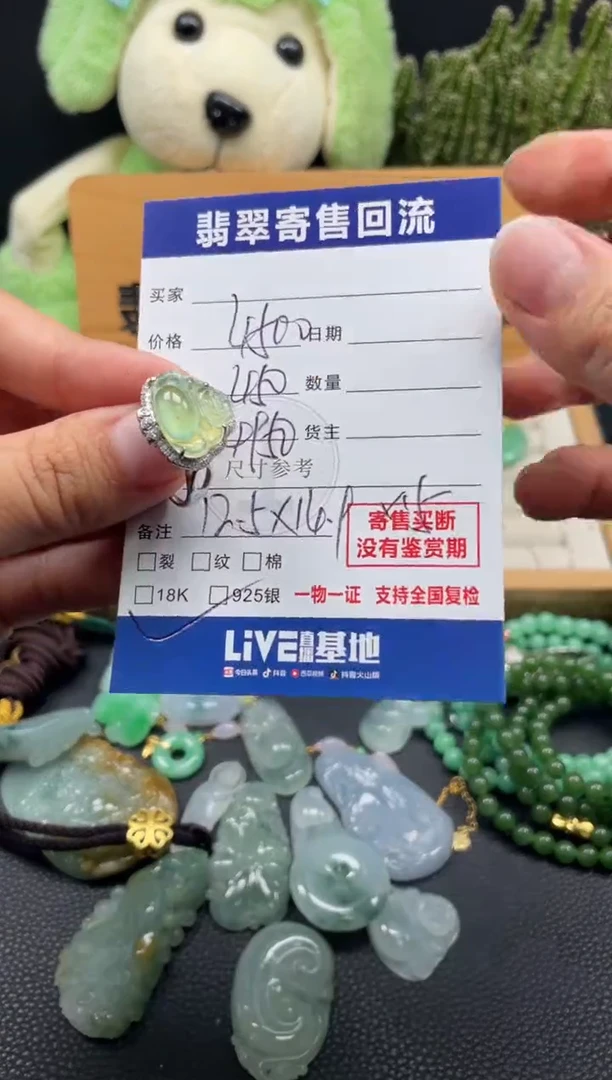 翡翠寄售回流
买家
价格 4800 日期
450 数量
4950 货主
尺寸参考
备注 12.5×16.9×5
寄售买断
没有鉴赏期
□裂 □纹 □棉
□18K □925银 一物一证 支持全国复检
LiVE直播基地
今日头条 抖音 西瓜视频 抖音火山版